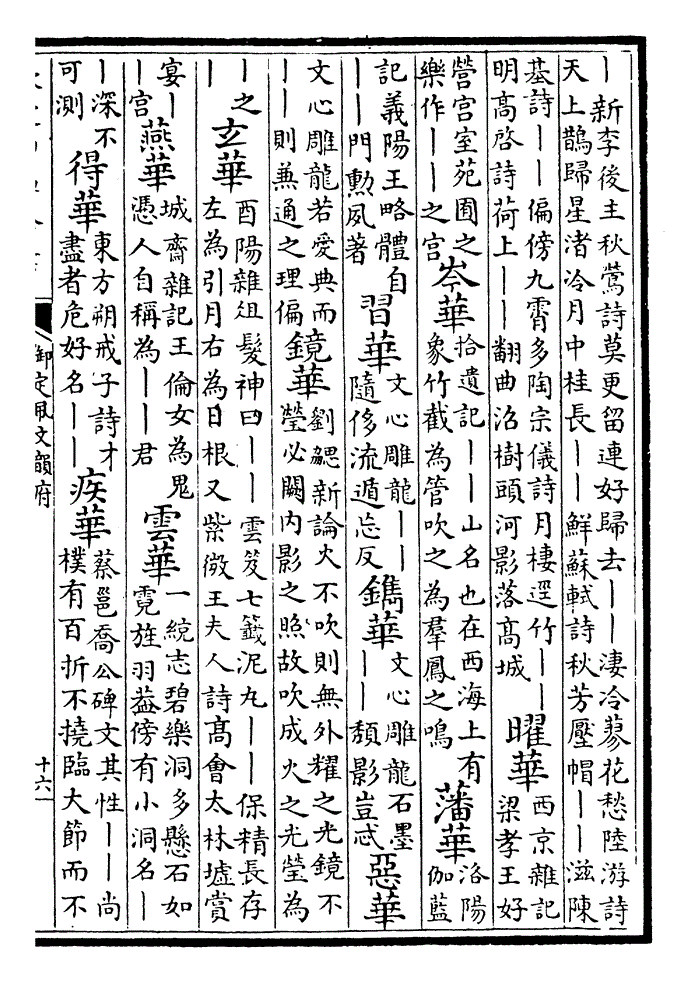 ｜新李後主秋鶯詩莫更留連好歸去｜｜淒冷蓼花愁陸游詩
天上鵲歸星渚冷月中桂長｜｜鮮蘇軾詩秋芳壓帽｜｜滋陳
基詩｜｜偏傍九霄多陶宗儀詩月棲逕竹｜｜
明高啓詩荷上｜｜翻曲沼樹頭河影落高城
曜華
西京雜記
梁孝王好
營宮室苑囿之
樂作｜｜之宮
岑華
拾遺記｜｜山名也在西海上有
象竹截為管吹之為羣鳳之鳴
藩華
洛陽
伽藍
記義陽王略體自
｜｜門勲夙著
習華
文心雕龍｜｜
隨侈流遁忘反
鐫華
文心雕龍石墨
｜｜頹影豈忒
惡華
文心雕龍若愛典而
｜｜則兼通之理偏
鏡華
劉勰新論火不吹則無外耀之光鏡不
瑩必闕內影之照故吹成火之光瑩為
｜之
｜
玄華
酉陽雜俎髮神曰｜｜雲笈七籤泥丸｜｜保精長存
左為引月右為日根又紫微王夫人詩高會太林墟賞
宴｜
｜宮
燕華
城齋雜記王倫女為鬼
憑人自稱為｜｜君
雲華
一統志碧樂洞多懸石如
霓旌羽葢傍有小洞名｜
｜深不
可測
得華
東方朔戒子詩才
盡者危好名｜｜
疾華
蔡邕喬公碑文其性｜｜尚
樸有百折不撓臨大節而不
御定佩文韻府
十六